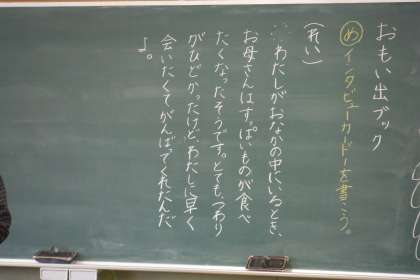 おもい出ブック
めインタビューカードーを書こう。
(れい)
…わたしがおなかの中にいるとき、
お母さんはすっぱいものが食べ
たくなったそうです。とても、つわり
がひどかったけど、わたしに早く
会いたくてがんばってくれたんだ
よ。